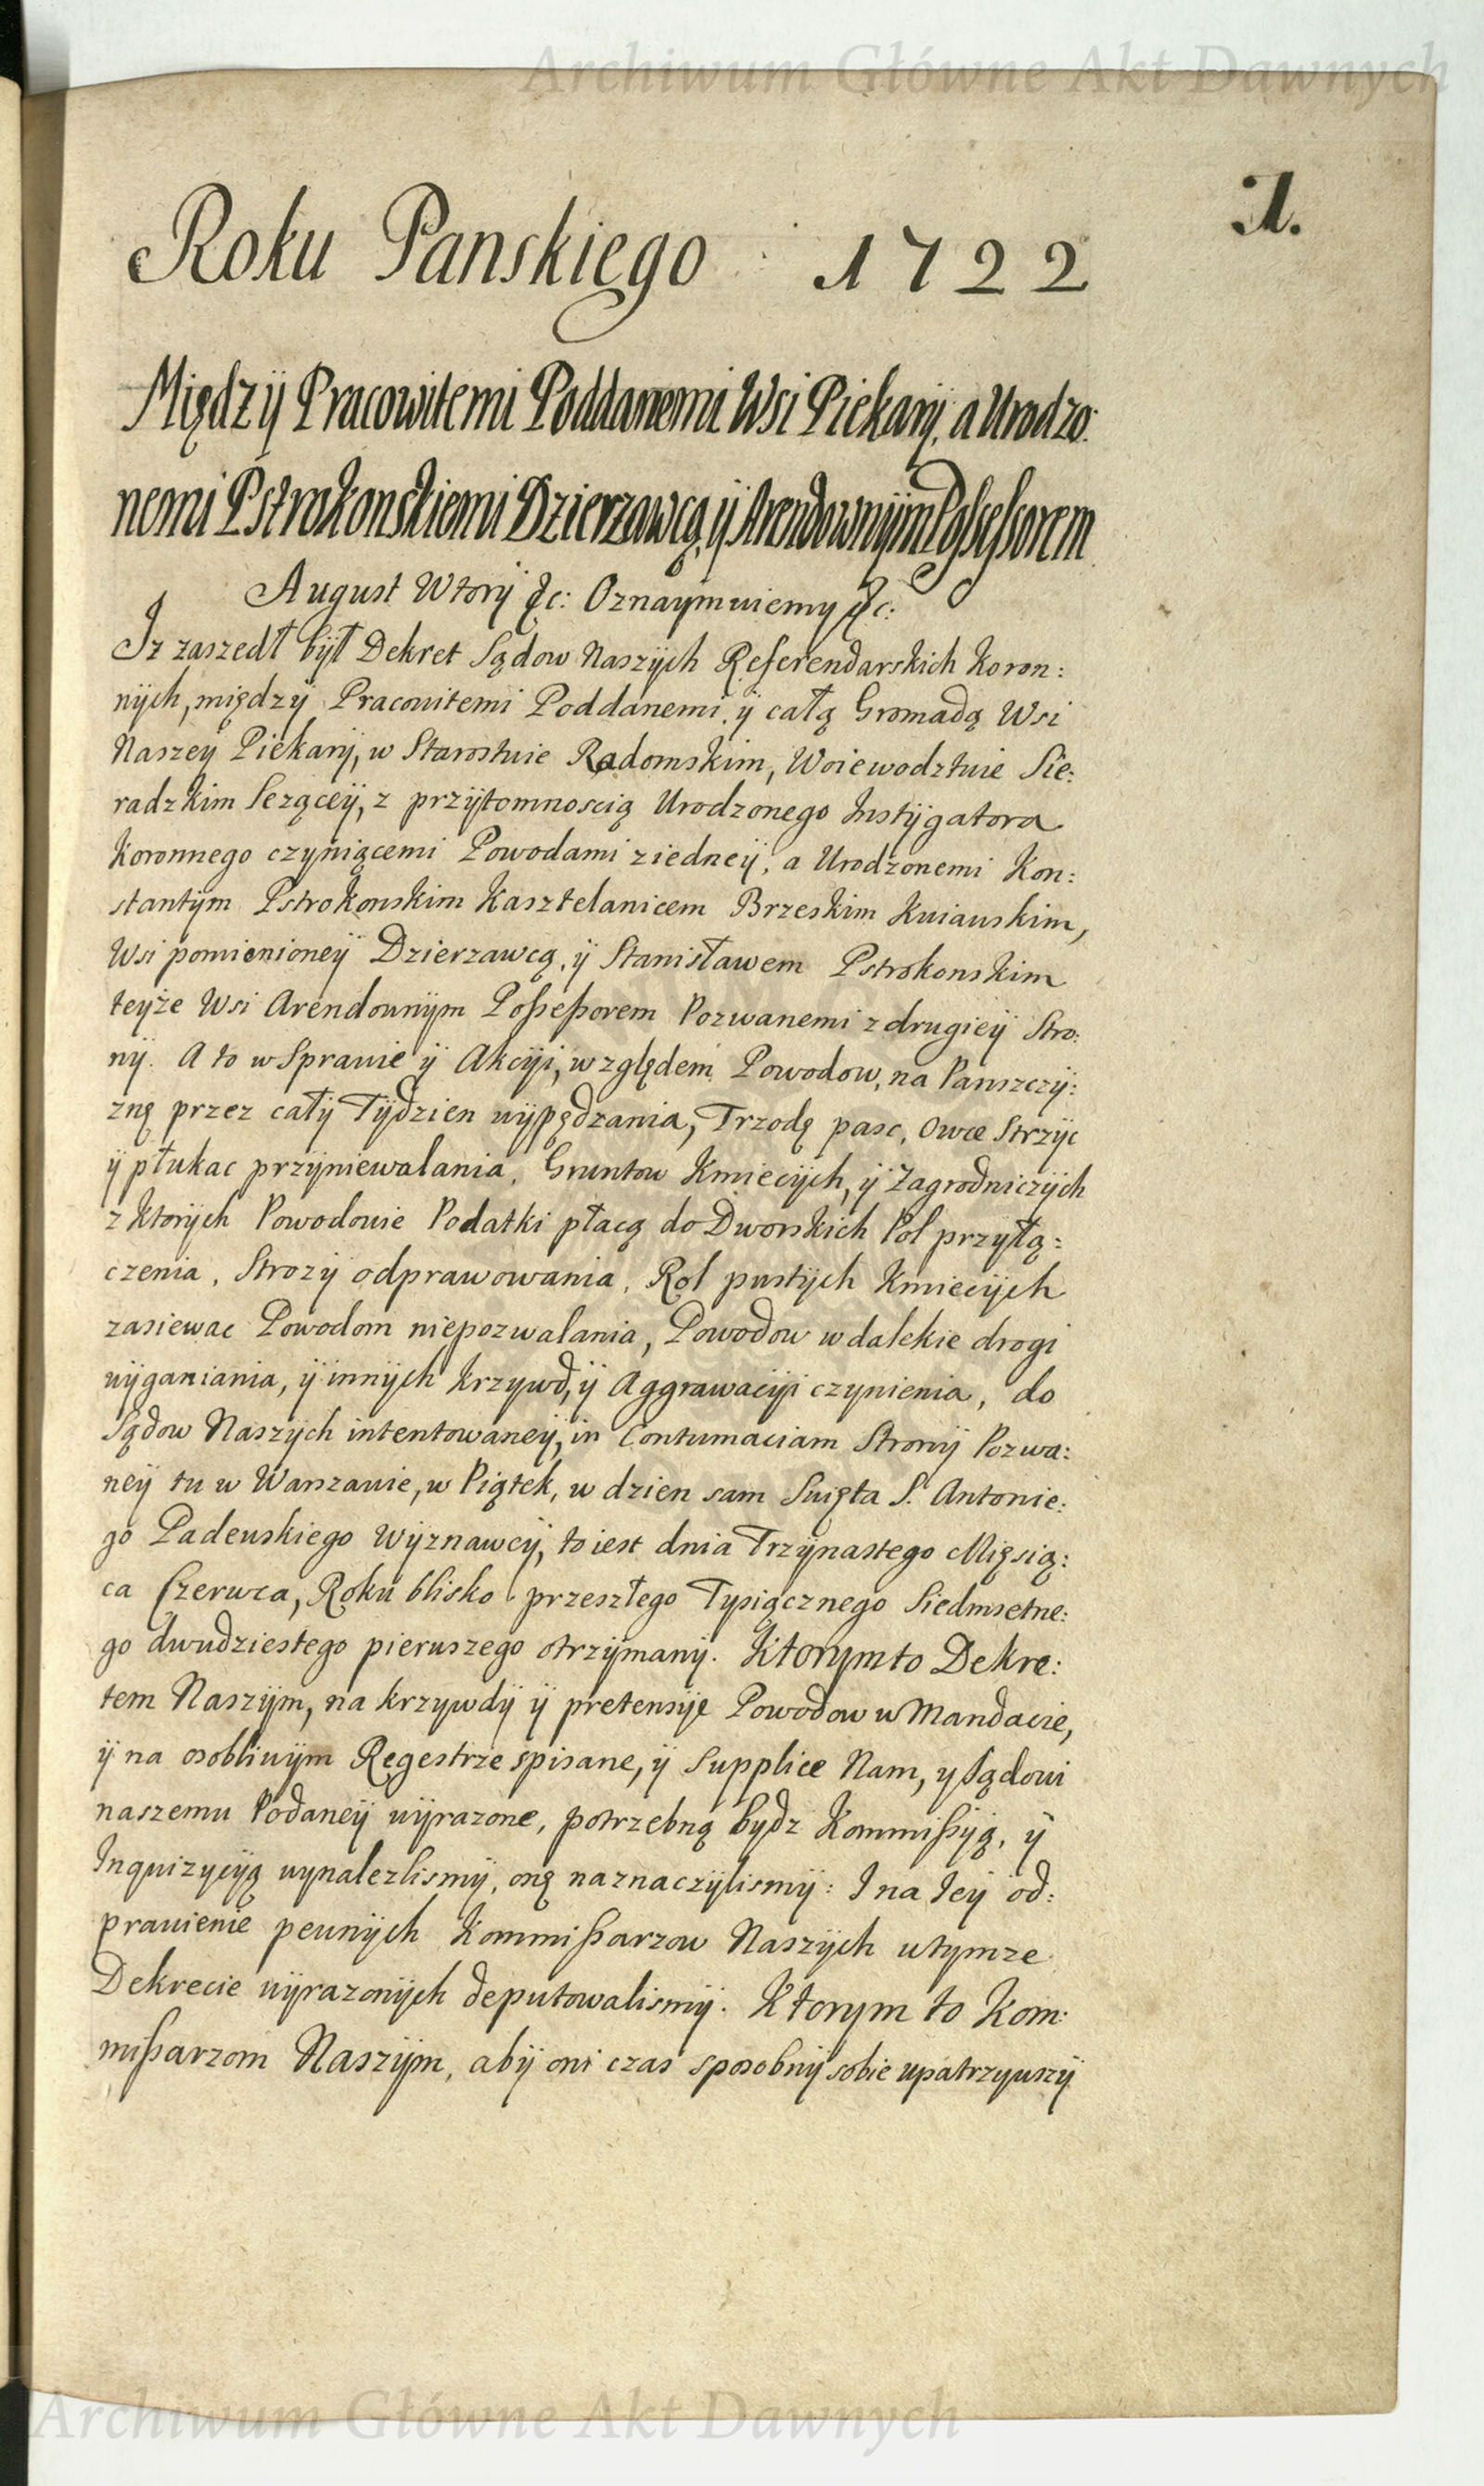 Archiwum Główne Akt Dawnych
1.
Roku Panskiego 1722
Międzÿ Pracowitemi Poddanemi Wsi Piekarÿ, a Urodzo:
nemi Pstrokonskiemi Dzierzawcą, ÿ Arendownÿm Possessorem
August Wtorÿ &c: Oznaymuiemy &c:
Iz zaszedł bÿł Dekret Sądow Naszÿch Referendarskich Koron:
nÿch, międzÿ Pracowitemi Poddanemi, ÿ całą Gromadą Wsi
Naszeÿ Piekarÿ, w Starostwie Radomskim, Woiewodztwie Sie:
radzkim Lezączeÿ, z przÿtomnoscią Urodzonego Instÿgatora
Koronnego czyniącemi Powodami z iedneÿ, a Urodzonemi Kon:
stantÿm Pstrokonskim Kasztelanicem Brzeskim Kuiawskim,
Wsi pomienioneÿ Dzierzawcą, ÿ Stanisławem Pstrokonskim
teÿże Wsi Arendownÿm Poßeßorem Pozwanemi z drugieÿ Stro:
nÿ. A to w Sprawie ÿ Akcÿi, względem Powodow, na Panszczÿ:
znę przez całÿ Tÿdzien wÿpędzania, Trzodę pasc, Owce Strzÿc
ÿ płukac przÿniewalania, Gruntow Kmiecÿch, ÿ Zagrodniczÿch
z ktorÿch Powodowie Podatki płacą do Dworskich Pol przyłą:
czenia, Strozÿ odprawowania, Rol pustÿch Kmiecÿch
zasiewac Powodom niepozwalania, Powodow w dalekie drogi
wÿganiania, ÿ innÿch krzywd, ÿ Aggrawacÿi czynienia, do
Sądow Naszÿch intentowaneÿ, in Contumaciam Stronÿ Pozwa:
neÿ tu w Warszawie, w Piątek, w dzien sam Swięta S. Antonie:
go Padewskiego Wÿznawcÿ, to iest dnia Trzÿnastego Miesią:
ca Czerwca, Roku blisko przeszłego Tysiącznego Siedmsetne:
go dwudziestego pierwszego otrzÿmanÿ. Ktorym to Dekre:
tem Naszÿm, na krzywdÿ ÿ pretensÿe Powodow w Mandacie,
ÿ na osobliwÿm Regestrze spisane, ÿ Supplice Nam, y Sądowi
naszemu Podaneÿ wÿrazone, potrzebną bydz Kommißyą, ÿ
Inquizycÿą wynalezlismÿ, onę naznaczÿlismÿ: I na Ieÿ od:
prawienie pewnÿch Kommißarzow Naszÿch w tymze
Dekrecie wÿrazonÿch deputowalismÿ. Ktorym to Kom:
mißarzom Naszÿm, abÿ oni czas sposobnÿ sobie upatrzywszÿ
Archiwum Główne Akt Dawnych